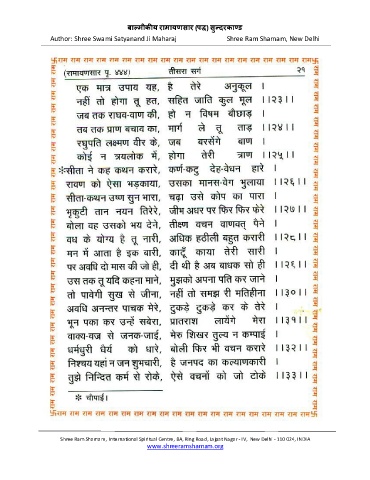 बाल्मीकीय रामायणसार (पद्य) सुन्दरकाण्ड
Author: Shree Swami Satyanand Ji Maharaj Shree Ram Sharnam, New Delhi
राम राम राम राम राम राम राम राम राम राम राम राम राम राम राम राम राम
(रामायणसार पृ. ४४४) तीसरा सर्ग २१
एक मात्र उपाय यह, है तेरे अनुकूल ।
नहीं तो होगा तू हत, सहित जाति कुल मूल ।।२३।।
जब तक राघव-बाण की, हो न विषम बौछाड़ ।
तब तक प्राण बचाव का, मार्ग ले तू ताड़ ।।२४।।
रघुपति लक्ष्मण वीर के, जब बरसेंगे बाण ।
कोई न त्रयलोक में, होगा तेरी त्राण ।।२५।।
※सीता ने कह कथन करारे, कर्ण-कटु देह-वेधन हारे ।
रावण को ऐसा भड़काया, उसका मानस-वेग भुलाया ।।२६।।
सीता-कथन उष्ण सुन भारा, चढ़ा उसे कोप का पारा ।
भृकुटी तान नयन तिरेरे, जीभ अधर पर फिर फिर फेरे ।।२७।।
बोला वह उसको भय देने, तीक्ष्ण वचन वाणवत् पैने ।
वध के योग्य है तू नारी, अधिक हठीली बहुत करारी ।।२८।।
मन में आता है इक बारी, काटूँ काया तेरी सारी ।
पर अवधि दो मास की जो ही, दी थी है अब बाधक सो ही ।।२९।।
उस तक तू यदि कहना माने, मुझको अपना पति कर जाने ।
तो पावेगी सुख से जीना, नहीं तो समझ री मतिहीना ।।३०।।
अवधि अनन्तर पाचक मेरे, टुकड़े टुकड़े कर के तेरे ।
भून पका कर उन्हें सबेरा, प्रातराश लायेंगे मेरा ।।३१।।
वाक्य-वज्र से जनक-जाई, मेरु शिखर तुल्य न कम्पाई ।
धर्मधुरी धैर्य को धारे, बोली फिर भी वचन करारे ।।३२।।
निश्चय यहां न जन शुभचारी, है जनपद का कल्याणकारी ।
तुझे निन्दित कर्म से रोके, ऐसे वचनों को जो टोके ।।३३।।
※ चौपाई।
राम राम राम राम राम राम राम राम राम राम राम राम राम राम राम राम राम
Shree Ram Sharnam, International Spiritual Centre, 8A, Ring Road, Lajpat Nagar - IV, New Delhi - 110 024, INDIA
www.shreeramsharnam.org